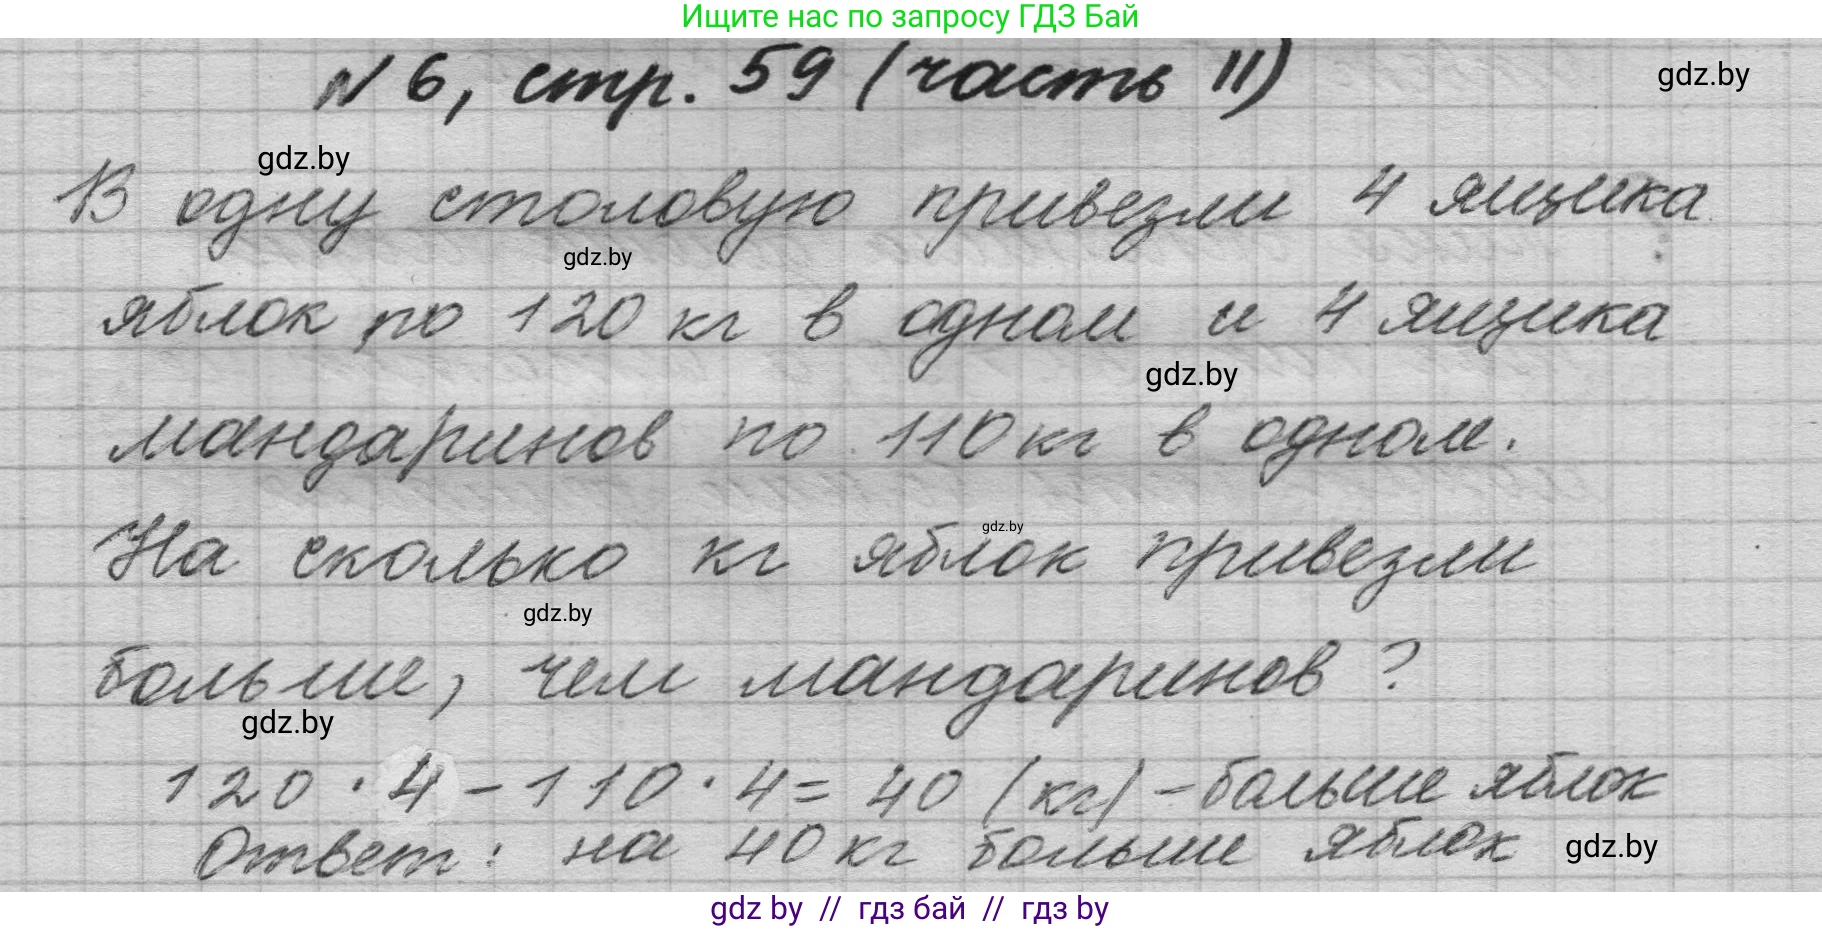 Ищите нас по запросу ГДЗ Бай
N 6, стр. 59 (часть II)
gdz.by
gdz.by
В одну столовую привезли 4 ящика
gdz.by
яблок по 120 кг в одном и 4 ящика
gdz.by
мандаринов по 110 кг в одном.
На сколько кг яблок привезли
gdz.by
gdz.by
больше, чем мандаринов?
gdz.by
120 · 4 - 110 · 4 = 40 (кг) - больше яблок
Ответ: на 40 кг больше яблок
gdz.by
gdz by // гдз бай // гдз by